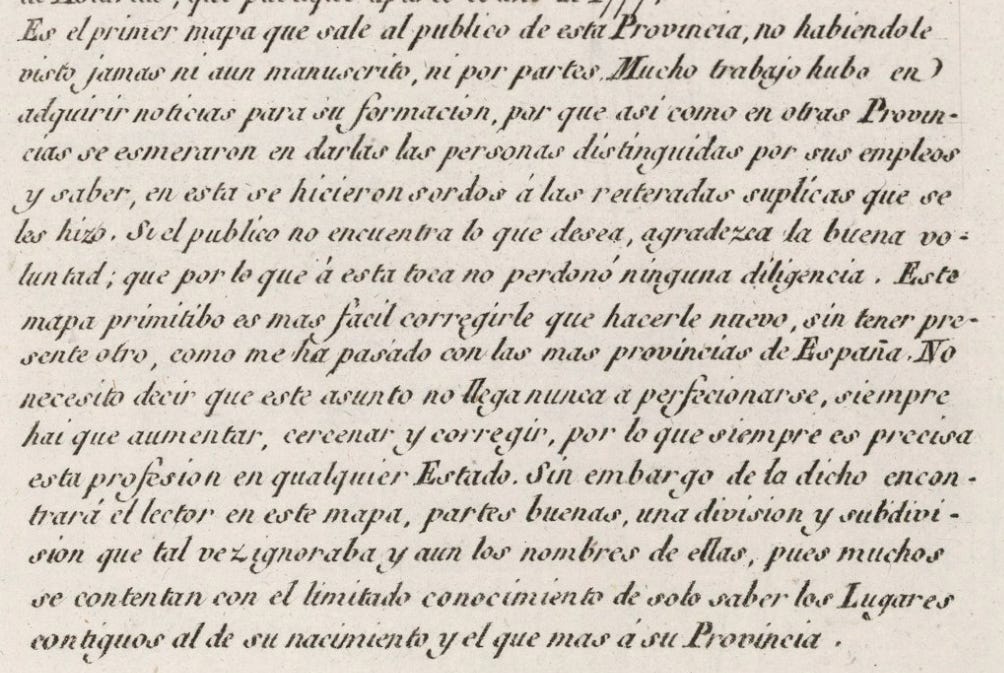 que
Es el primer mapa que sale al publico de esta Provincia, no habiendole
visto jamas ni aun manuscrito, ni por partes. Mucho trabajo hubo en
adquirir noticias para su formacion, por que asi como en otras Provin-
cias se esmeraron en darlas las personas distinguidas por sus empleos
y saber, en esta se hicieron sordos á las reiteradas suplicas que se
les hizo. Si el publico no encuentra lo que desea, agradezca la buena vo-
luntad; que por lo que á esta toca no perdonó ninguna diligencia. Este
mapa primitibo es mas facil corregirle que hacerle nuevo, sin tener pre-
sente otro, como me ha pasado con las mas provincias de España. No
necesito decir que este asunto no llega nunca a perfecionarse, siempre
hai que aumentar, cercenar y corregir, por lo que siempre es precisa
esta profesion en qualquier Estado. Sin embargo de lo dicho encon-
trará el lector en este mapa, partes buenas, una division y subdivi-
sion que tal vez ignoraba y aun los nombres de ellas, pues muchos
se contentan con el limitado conocimiento de solo saber los Lugares
contiguos al de su nacimiento y el que mas á su Provincia.